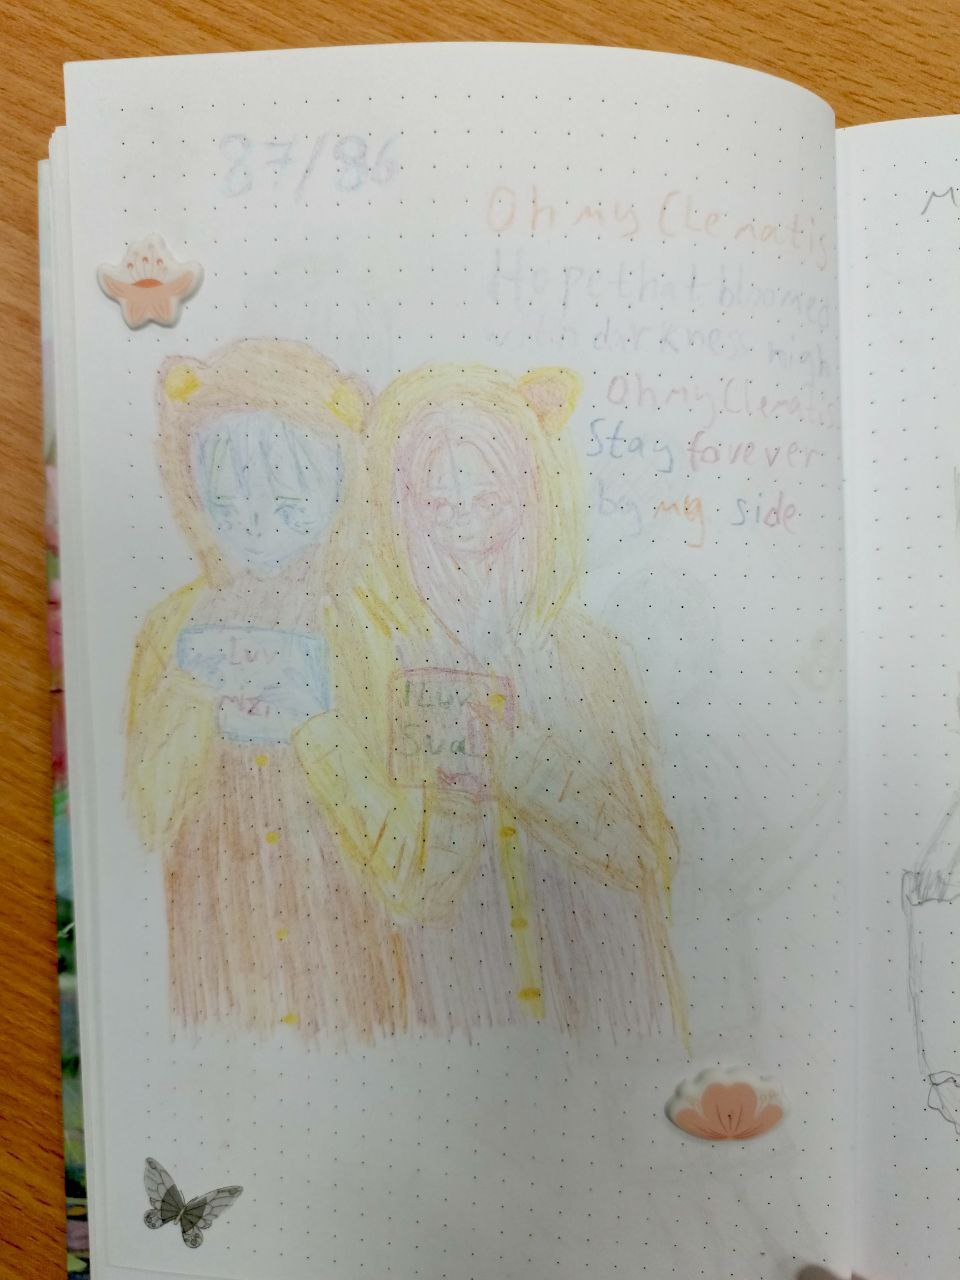 87/86
Oh my Clematis
Hope that bloomed
with darkness nigh
Oh my Clematis
Stay forever
by my side
I Luv
Mizi
I Luv
Sua
M